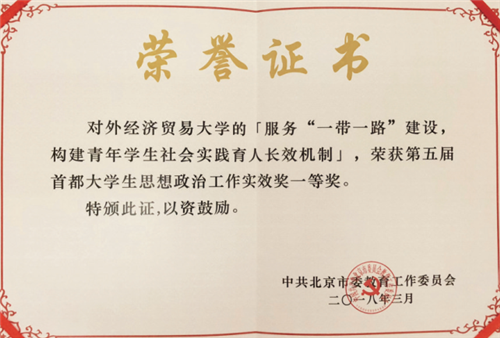 荣誉证书
对外经济贸易大学的「服务“一带一路”建设，
构建青年学生社会实践育人长效机制」，荣获第五届
首都大学生思想政治工作实效奖一等奖。
特颁此证，以资鼓励。
中共北京市委教育工作委员会
二〇一八年三月